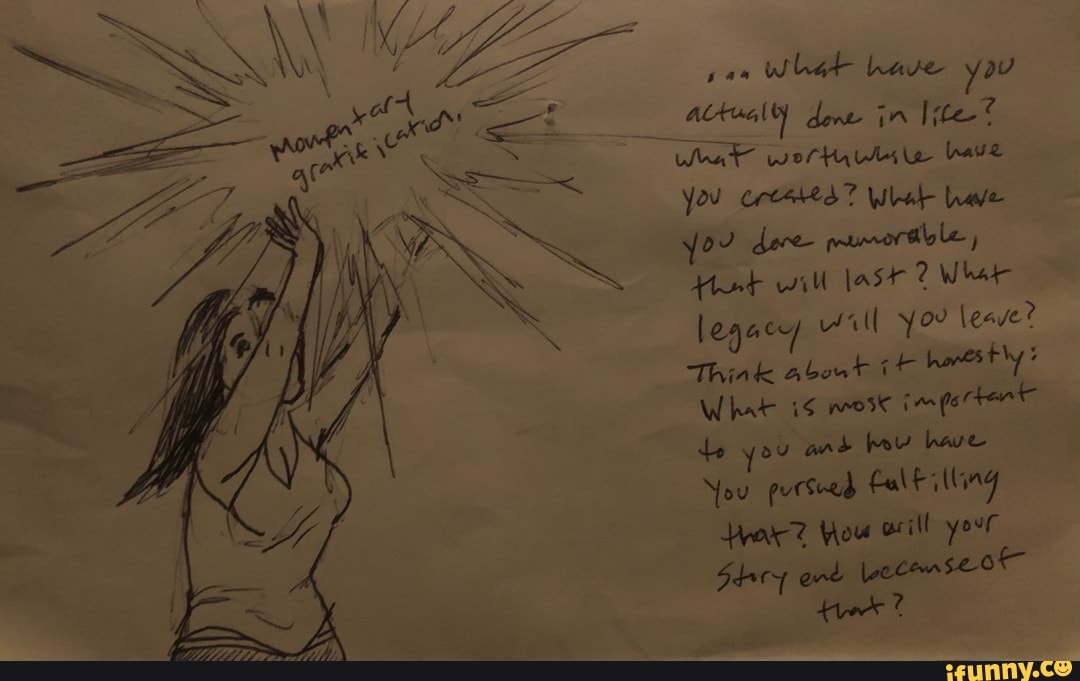 Momentary
gratification.
... What have you
actually done in life?
what worthwhile have
you created? What have
you done memorable,
that will last? What
legacy will you leave?
Think about it honestly:
What is most important
to you and how have
you pursued fulfilling
that? How will your
story end because of
that?
ifunny.co